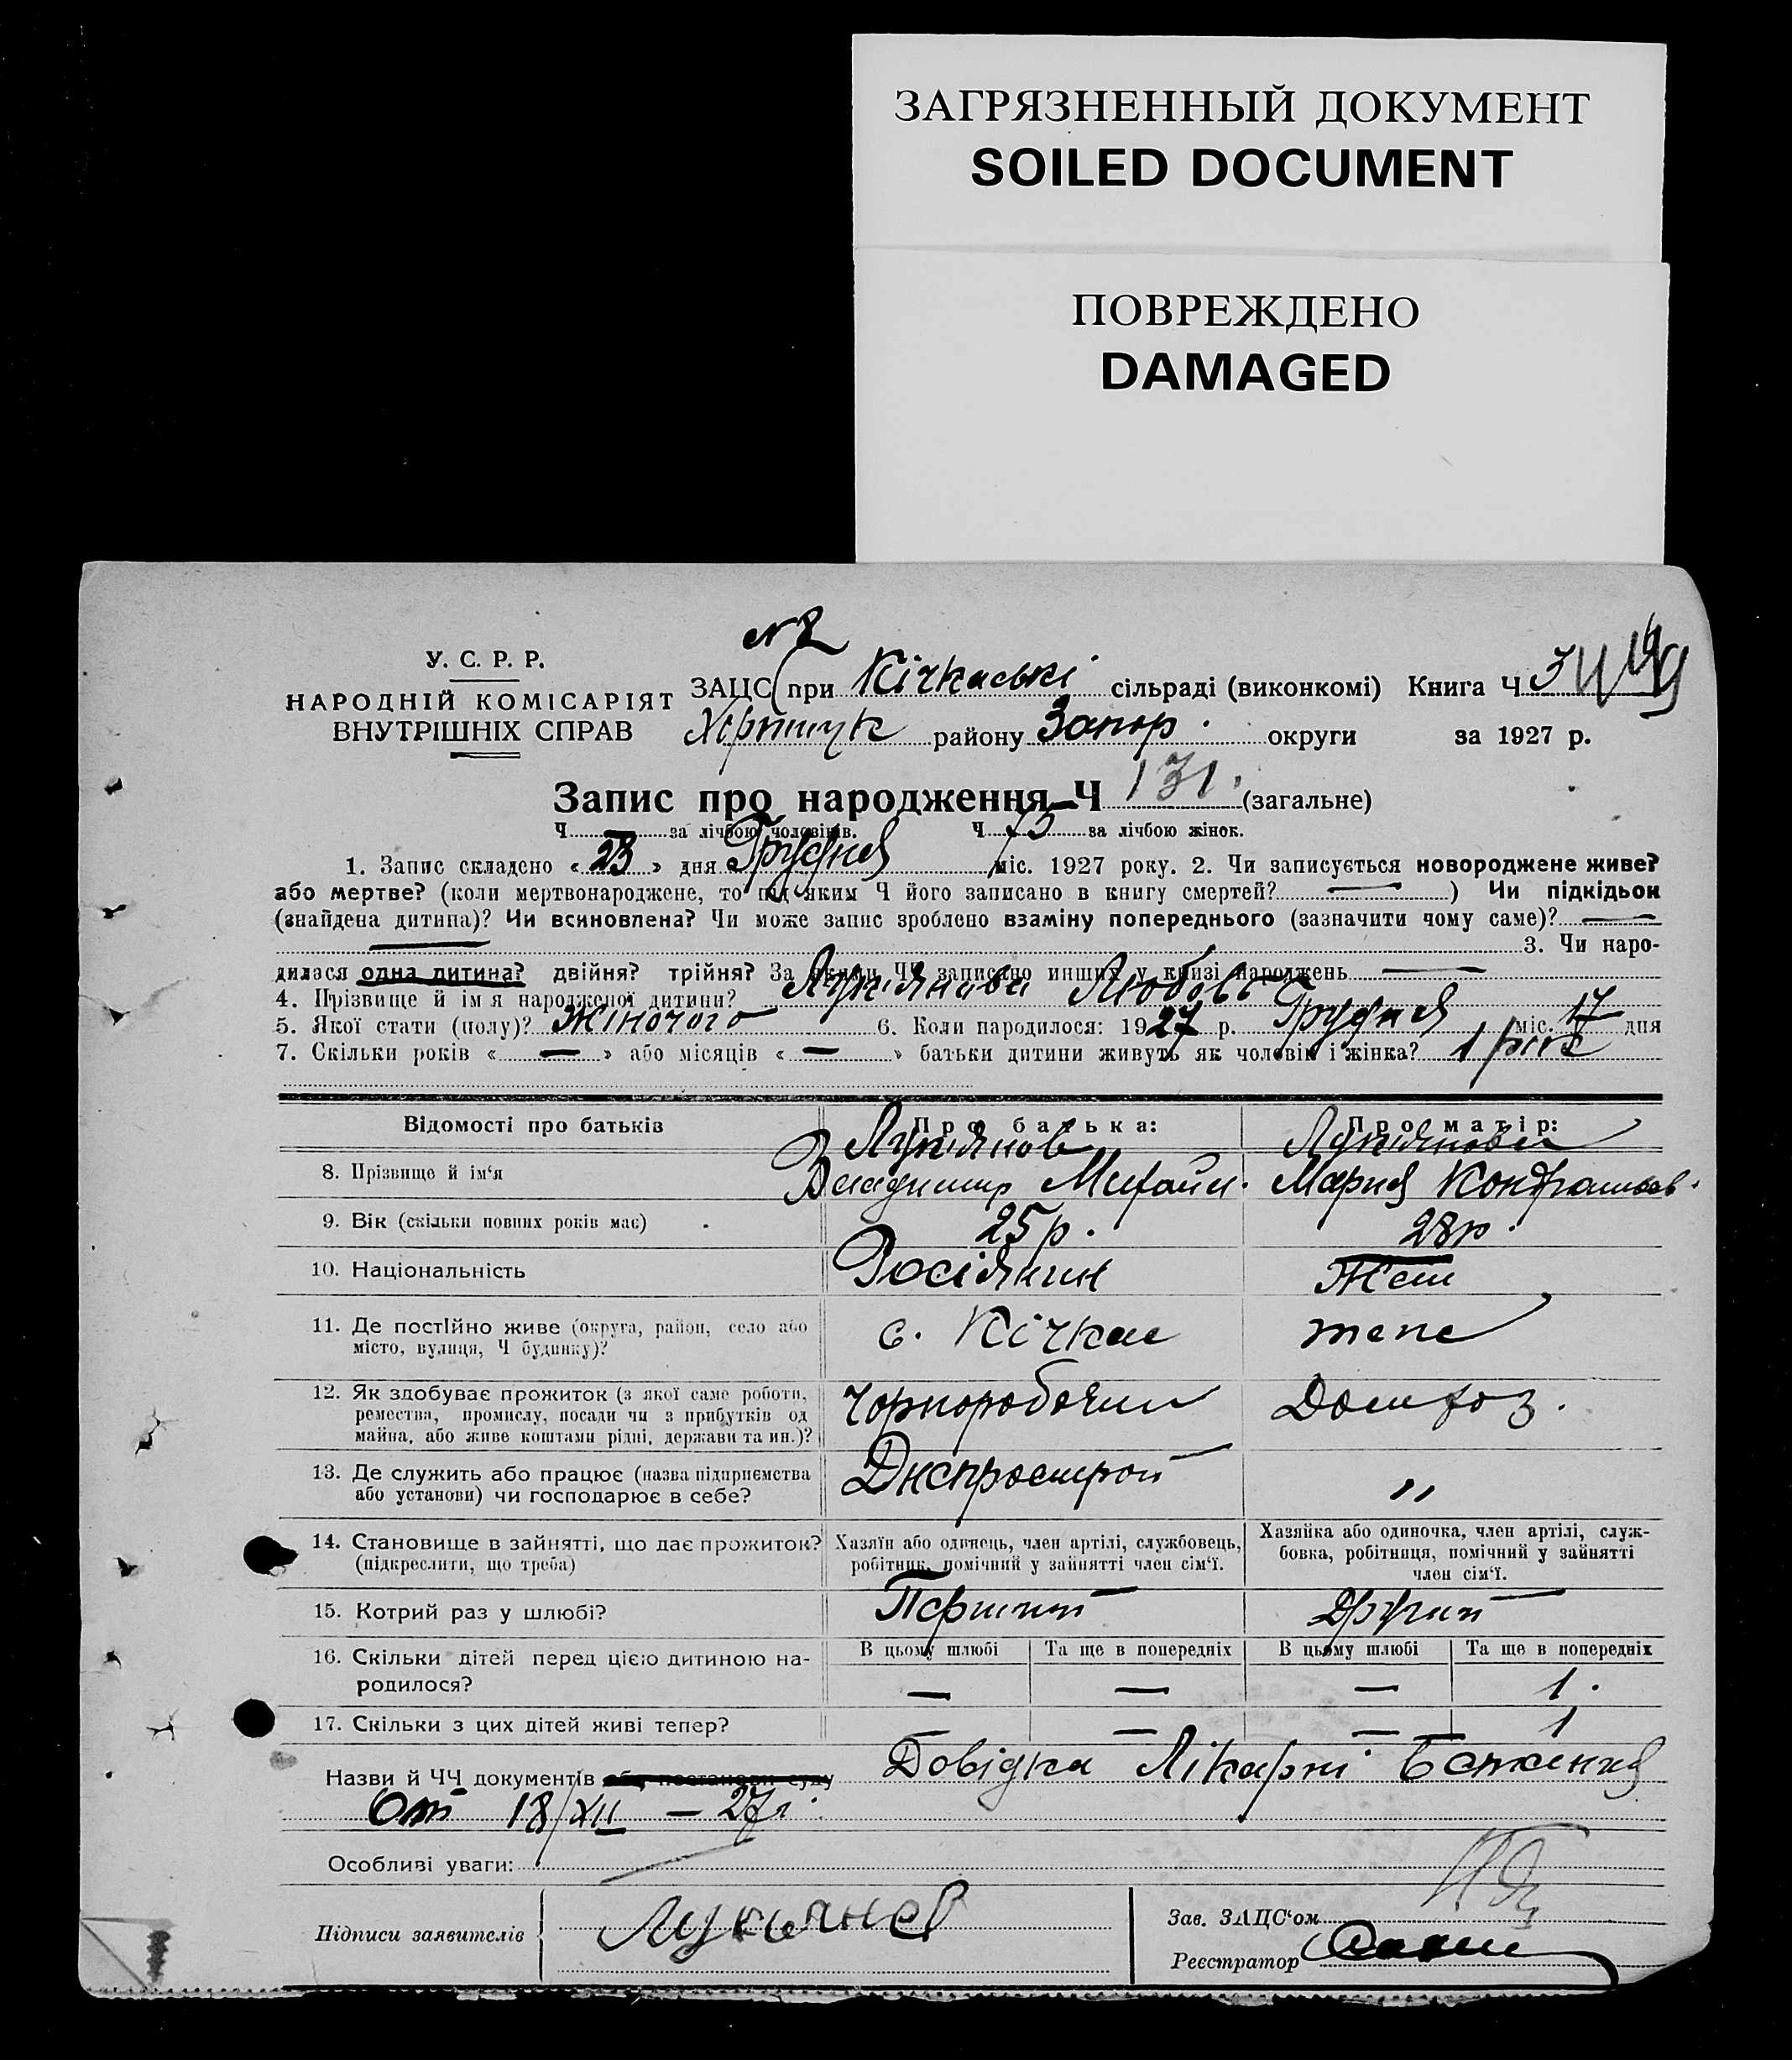 ЗАГРЯЗНЕННЫЙ ДОКУМЕНТ
SOILED DOCUMENT
ПОВРЕЖДЕНО
DAMAGED
№ 2
У. С. Р. Р.
НАРОДНІЙ КОМІСАРІЯТ
ВНУТРІШНІХ СПРАВ
ЗАЦС (при Кічкаські сільраді (виконкомі) Книга Ч 3
району Запор. округи за 1927 р.
Запис про народження Ч 131. (загальне)
Ч — за лічбою чоловіків. Ч 75 за лічбою жінок.
1. Запис складено «23» дня Грудня міс. 1927 року. 2. Чи записується новороджене живе?
або мертве? (коли мертвонароджене, то під яким Ч його записано в книгу смертей? — ) Чи підкідьок
(знайдена дитина)? Чи всиновлена? Чи може запис зроблено взаміну попереднього (зазначити чому саме)? —
— 3. Чи наро-
дилася одна дитина? двійня? трійня? За якими ЧЧ записано инших у книзі народжень —
4. Прізвище й ім я народженої дитини? Лукіянова Любовь
5. Якої стати (полу)? Жіночого 6. Коли народилося: 1927 р. Грудня міс. 17 дня
7. Скільки років « — » або місяців « — » батьки дитини живуть як чоловік і жінка? 1 рік
Відомості про батьків Про батька: Про матір:
Лукіянов Лукіянова
8. Прізвище й ім'я Владимир Михайл. Мария
9. Вік (скільки повних років має) 25 р. 28 р.
10. Національність Росіянин
11. Де постійно живе (округа, район, село або
місто, вулиця, Ч будинку)? с. Кічкас теж
12. Як здобуває прожиток (з якої саме роботи,
ремества, промислу, посади чи з прибутків од
майна, або живе коштами рідні, держави та ин.)? Чорноробочий Домхоз.
13. Де служить або працює (назва підприємства
або установи) чи господарює в себе? Днепрострой "
14. Становище в зайнятті, що дає прожиток?
(підкреслити, що треба)
Хазяїн або одинець, член артілі, службовець,
робітник, помічний у зайнятті член сім'ї.
Хазяйка або одиночка, член артілі, служ-
бовка, робітниця, помічний у зайнятті
член сім'ї.
15. Котрий раз у шлюбі? Перший Другий
16. Скільки дітей перед цією дитиною на-
родилося?
В цьому шлюбі Та ще в попередніх В цьому шлюбі Та ще в попередніх
— — — 1.
17. Скільки з цих дітей живі тепер? — — — 1
Назви й ЧЧ документів або постанови суду Довідка Лікарні
От 18/XII — 27 г.
Особливі уваги:
Підписи заявителів Лукьянов
Зав. ЗАЦС'ом
Реєстратор